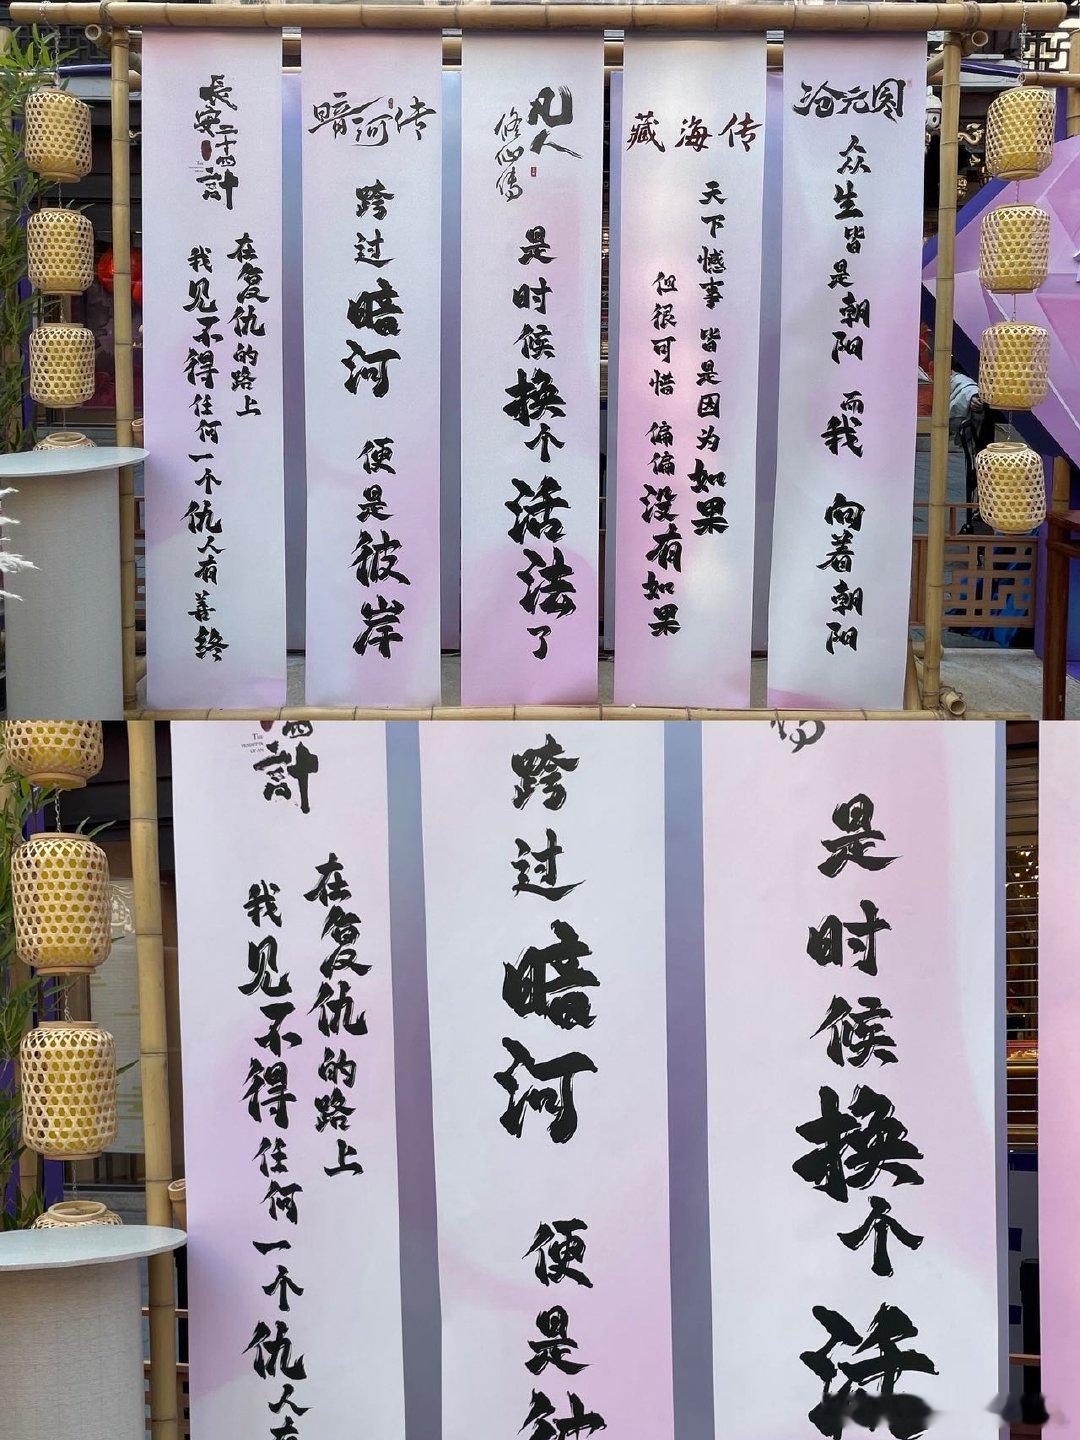 長安二十四計
在復仇的路上
我见不得任何一个仇人有善终
暗河传
跨过暗河 便是彼岸
凡人
修仙傳
是时候换个活法了
藏海传
天下憾事 皆是因为如果
但很可惜 偏偏没有如果
沧元图
众生皆是朝阳 而我 向着朝阳
四計
THE
VENDETTA
OF AN
在復仇的路上
我见不得任何一个仇人有
跨过暗河 便是彼
傳
是时候换个活